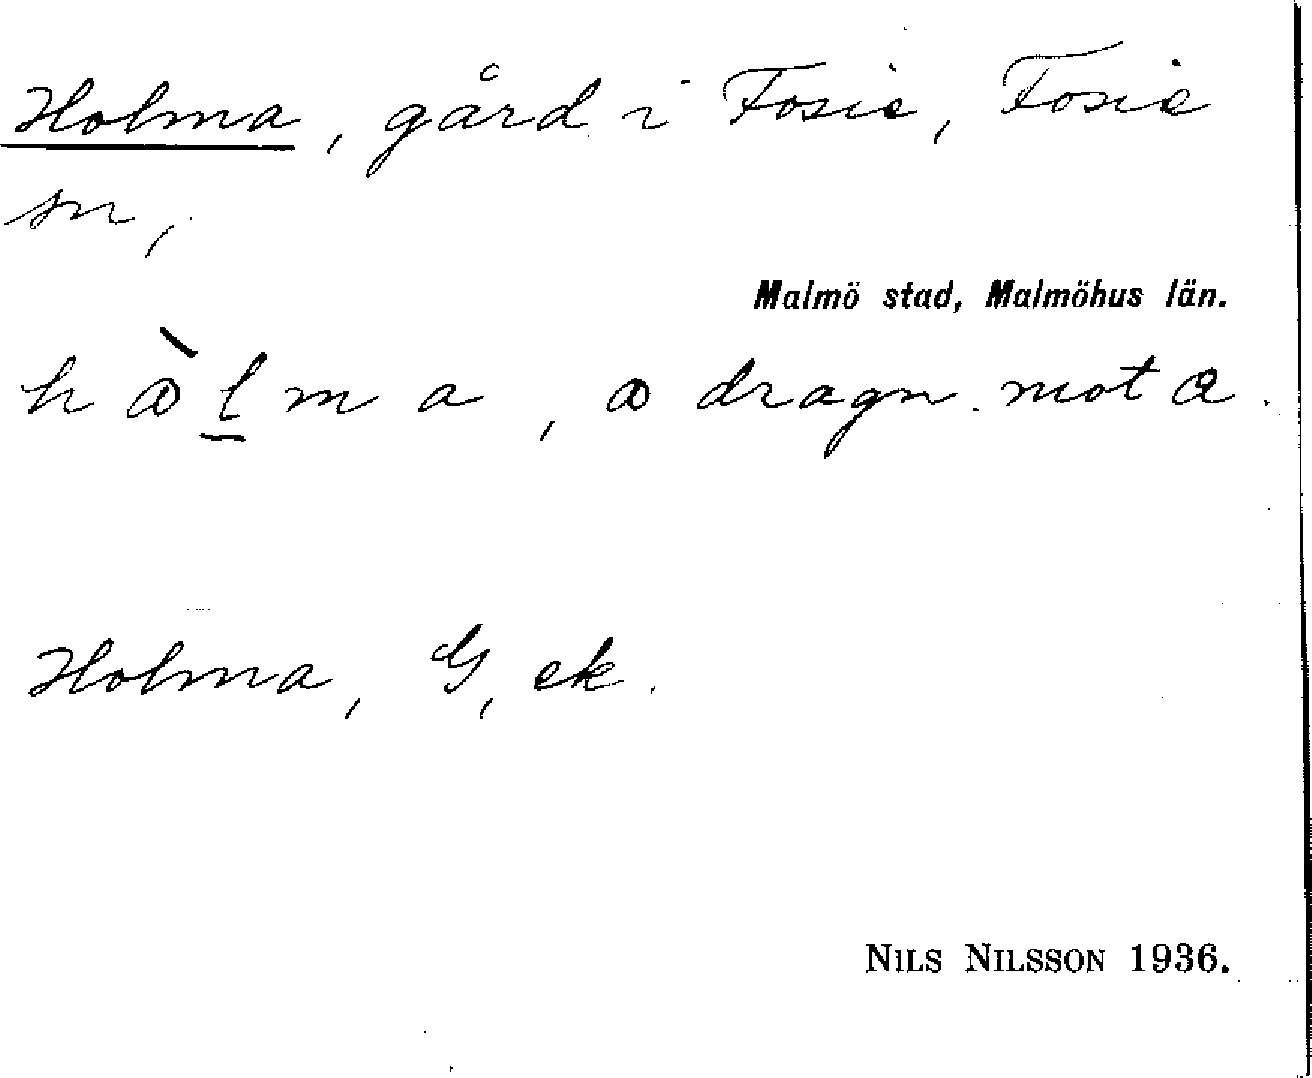 Holma, gård i Fosie, Fosie
sn,
Malmö stad, Malmöhus län.
dragn. mot
Holma, G, ek.
NILS NILSSON 1936.